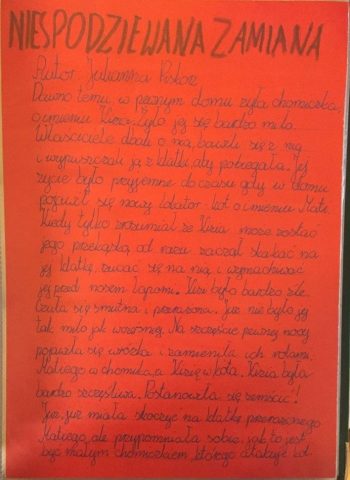 NIESPODZIEWANA ZAMIANA
Autor Julianna
Dawno temu, w pewnym domu żyła chomiczka,
o imieniu Kizia. Żyło jej się bardzo miło.
Właściciele dbali o nią, bawili się z nią
i wypuszczali ją z klatki, aby pobiegała. Jej
życie było przyjemne do czasu gdy w domu
pojawił się nowy lokator - kot o imieniu
Kiedy tylko zrozumiał że Kizia może zostać
jego przekąską od razu zaczął skakać na
jej klatkę, rzucać się na nią i wymachiwać
jej przed nosem łapami. Kizi było bardzo źle.
Czuła się smutna i przerażona. Już nie było jej
tak miło jak wcześniej. Na szczęście pewnej nocy
pojawiła się wróżka i zamieniła ich rolami.
w chomika, a Kizię w kota. Kizia była
bardzo szczęśliwa. Postanowiła się zemścić!
Już, już miała skoczyć na klatkę przerażonego
ale przypomniała sobie, jak to jest
być małym chomikiem, którego atakuje kot